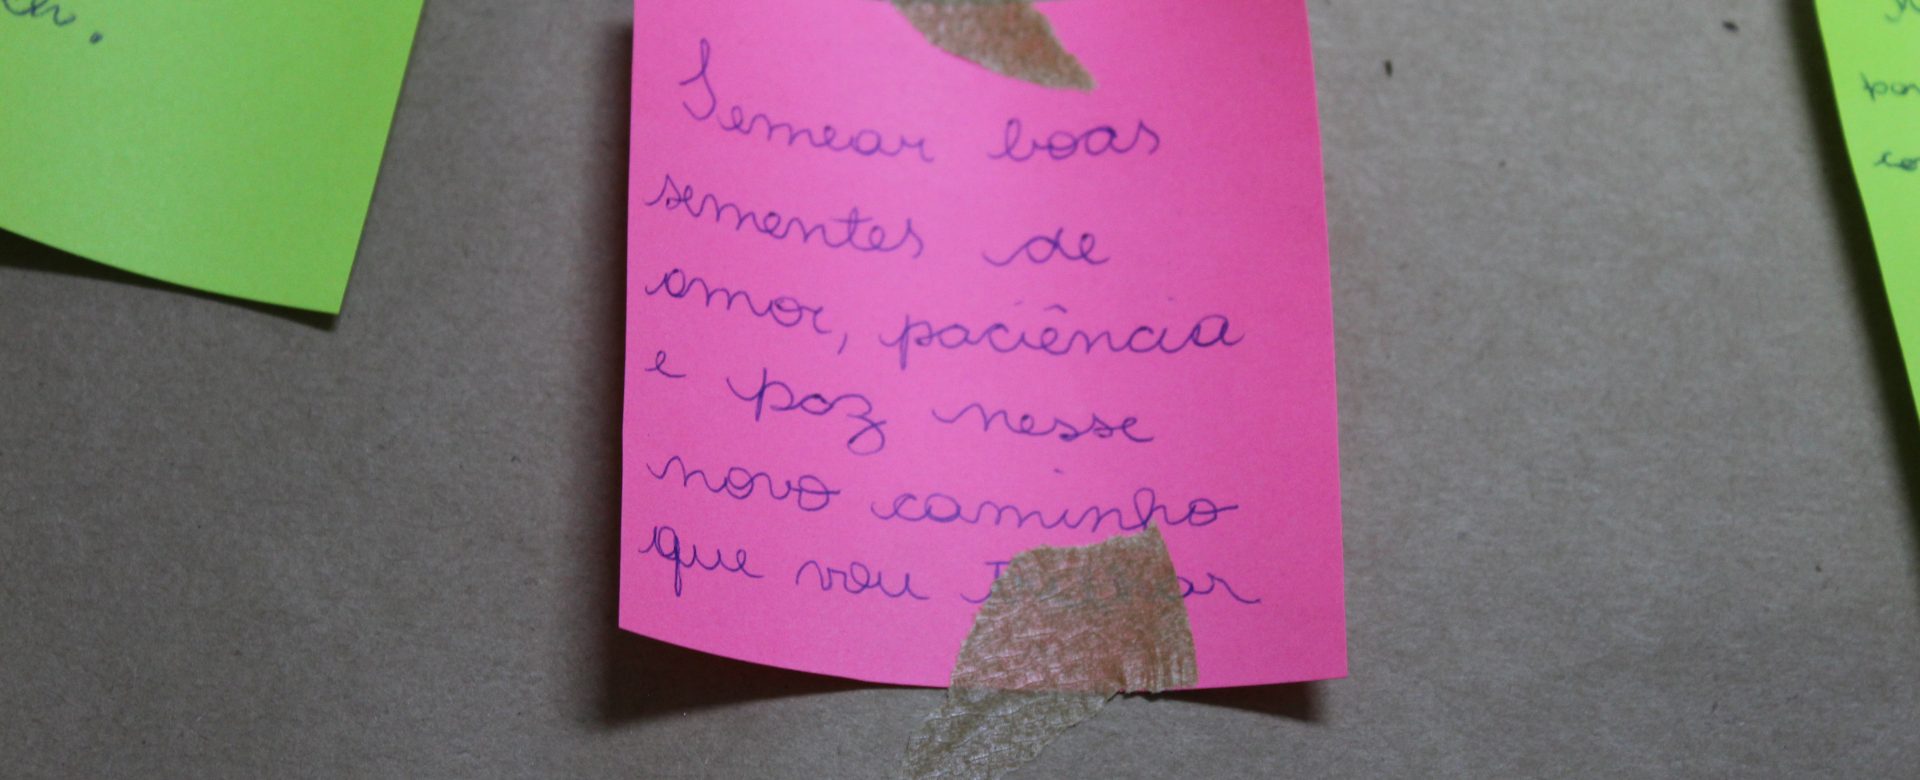 Semear boas
sementes de
amor, paciência
e paz nesse
novo caminho
que vou
por